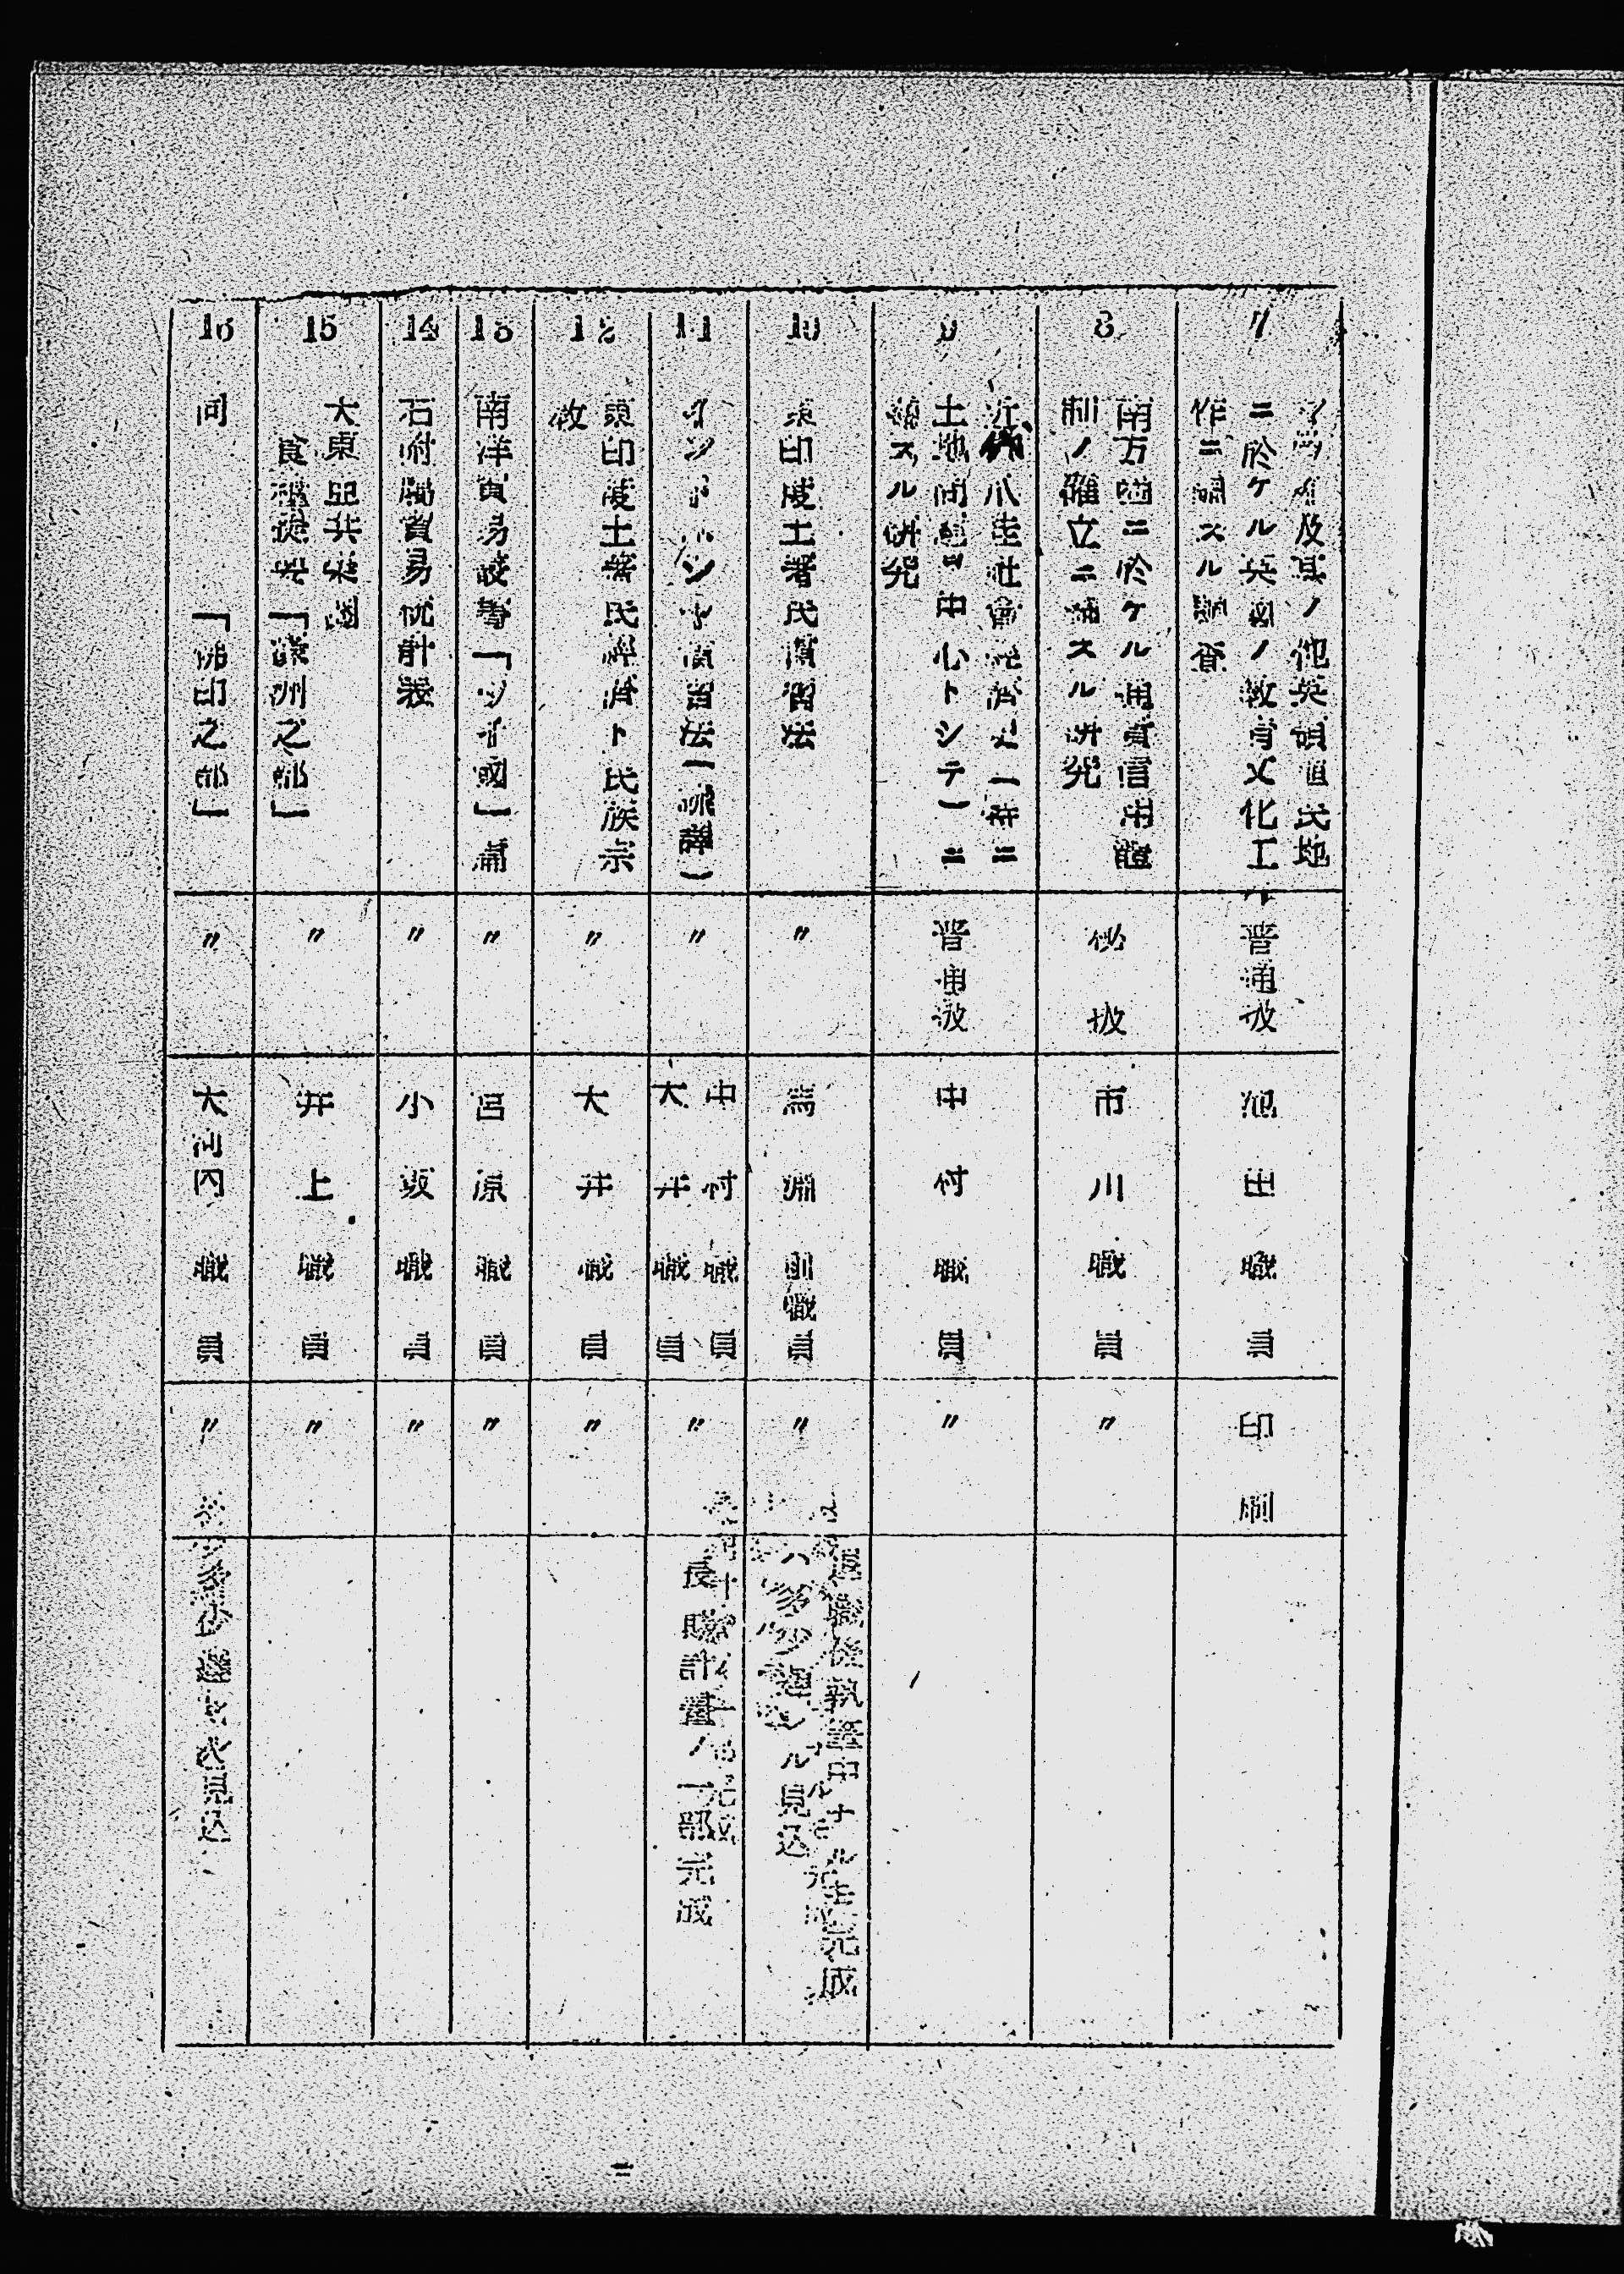 7
マライ及其ノ他英領植民地
ニ於ケル英國ノ教育文化工
作ニ關スル調査
普通扱
池田職員
印刷
8
南方圈ニ於ケル通貨信用體
制ノ確立ニ關スル研究
秘扱
市川職員
〃
9
近代爪哇社會經濟史(特ニ
土地問題ヲ中心トシテ)ニ
關スル研究
普通扱
中村職員
〃
10
東印度土著民慣習法
〃
馬淵前職員
〃
退職後執筆中ナル未完成
ハ多少遅ルル見込
11
インドネシヤ慣習法(飜譯)
〃
中村職員
大井職員
〃
長期計畫ノ一部完成
12
東印度土著民經濟ト民族宗
教
〃
大井職員
〃
13
南洋貿易叢書「タイ國」篇
〃
宮原職員
〃
14
右附屬貿易統計表
〃
小坂職員
〃
15
大東亞共榮圈
食糧提要「濠洲之部」
〃
井上職員
〃
16
同「佛印之部」
〃
大河内職員
〃
見込
二